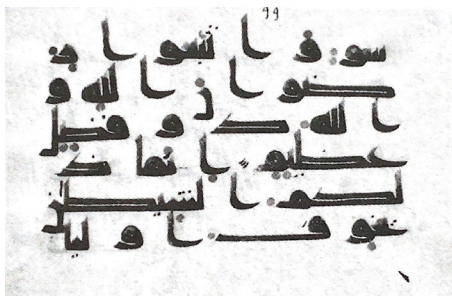 ٩٩
سو واتبعوا ر
ضوان الله و
الله ذو فضل
عظيم انما ذ
لكم الشيطن
يخوف اوليا